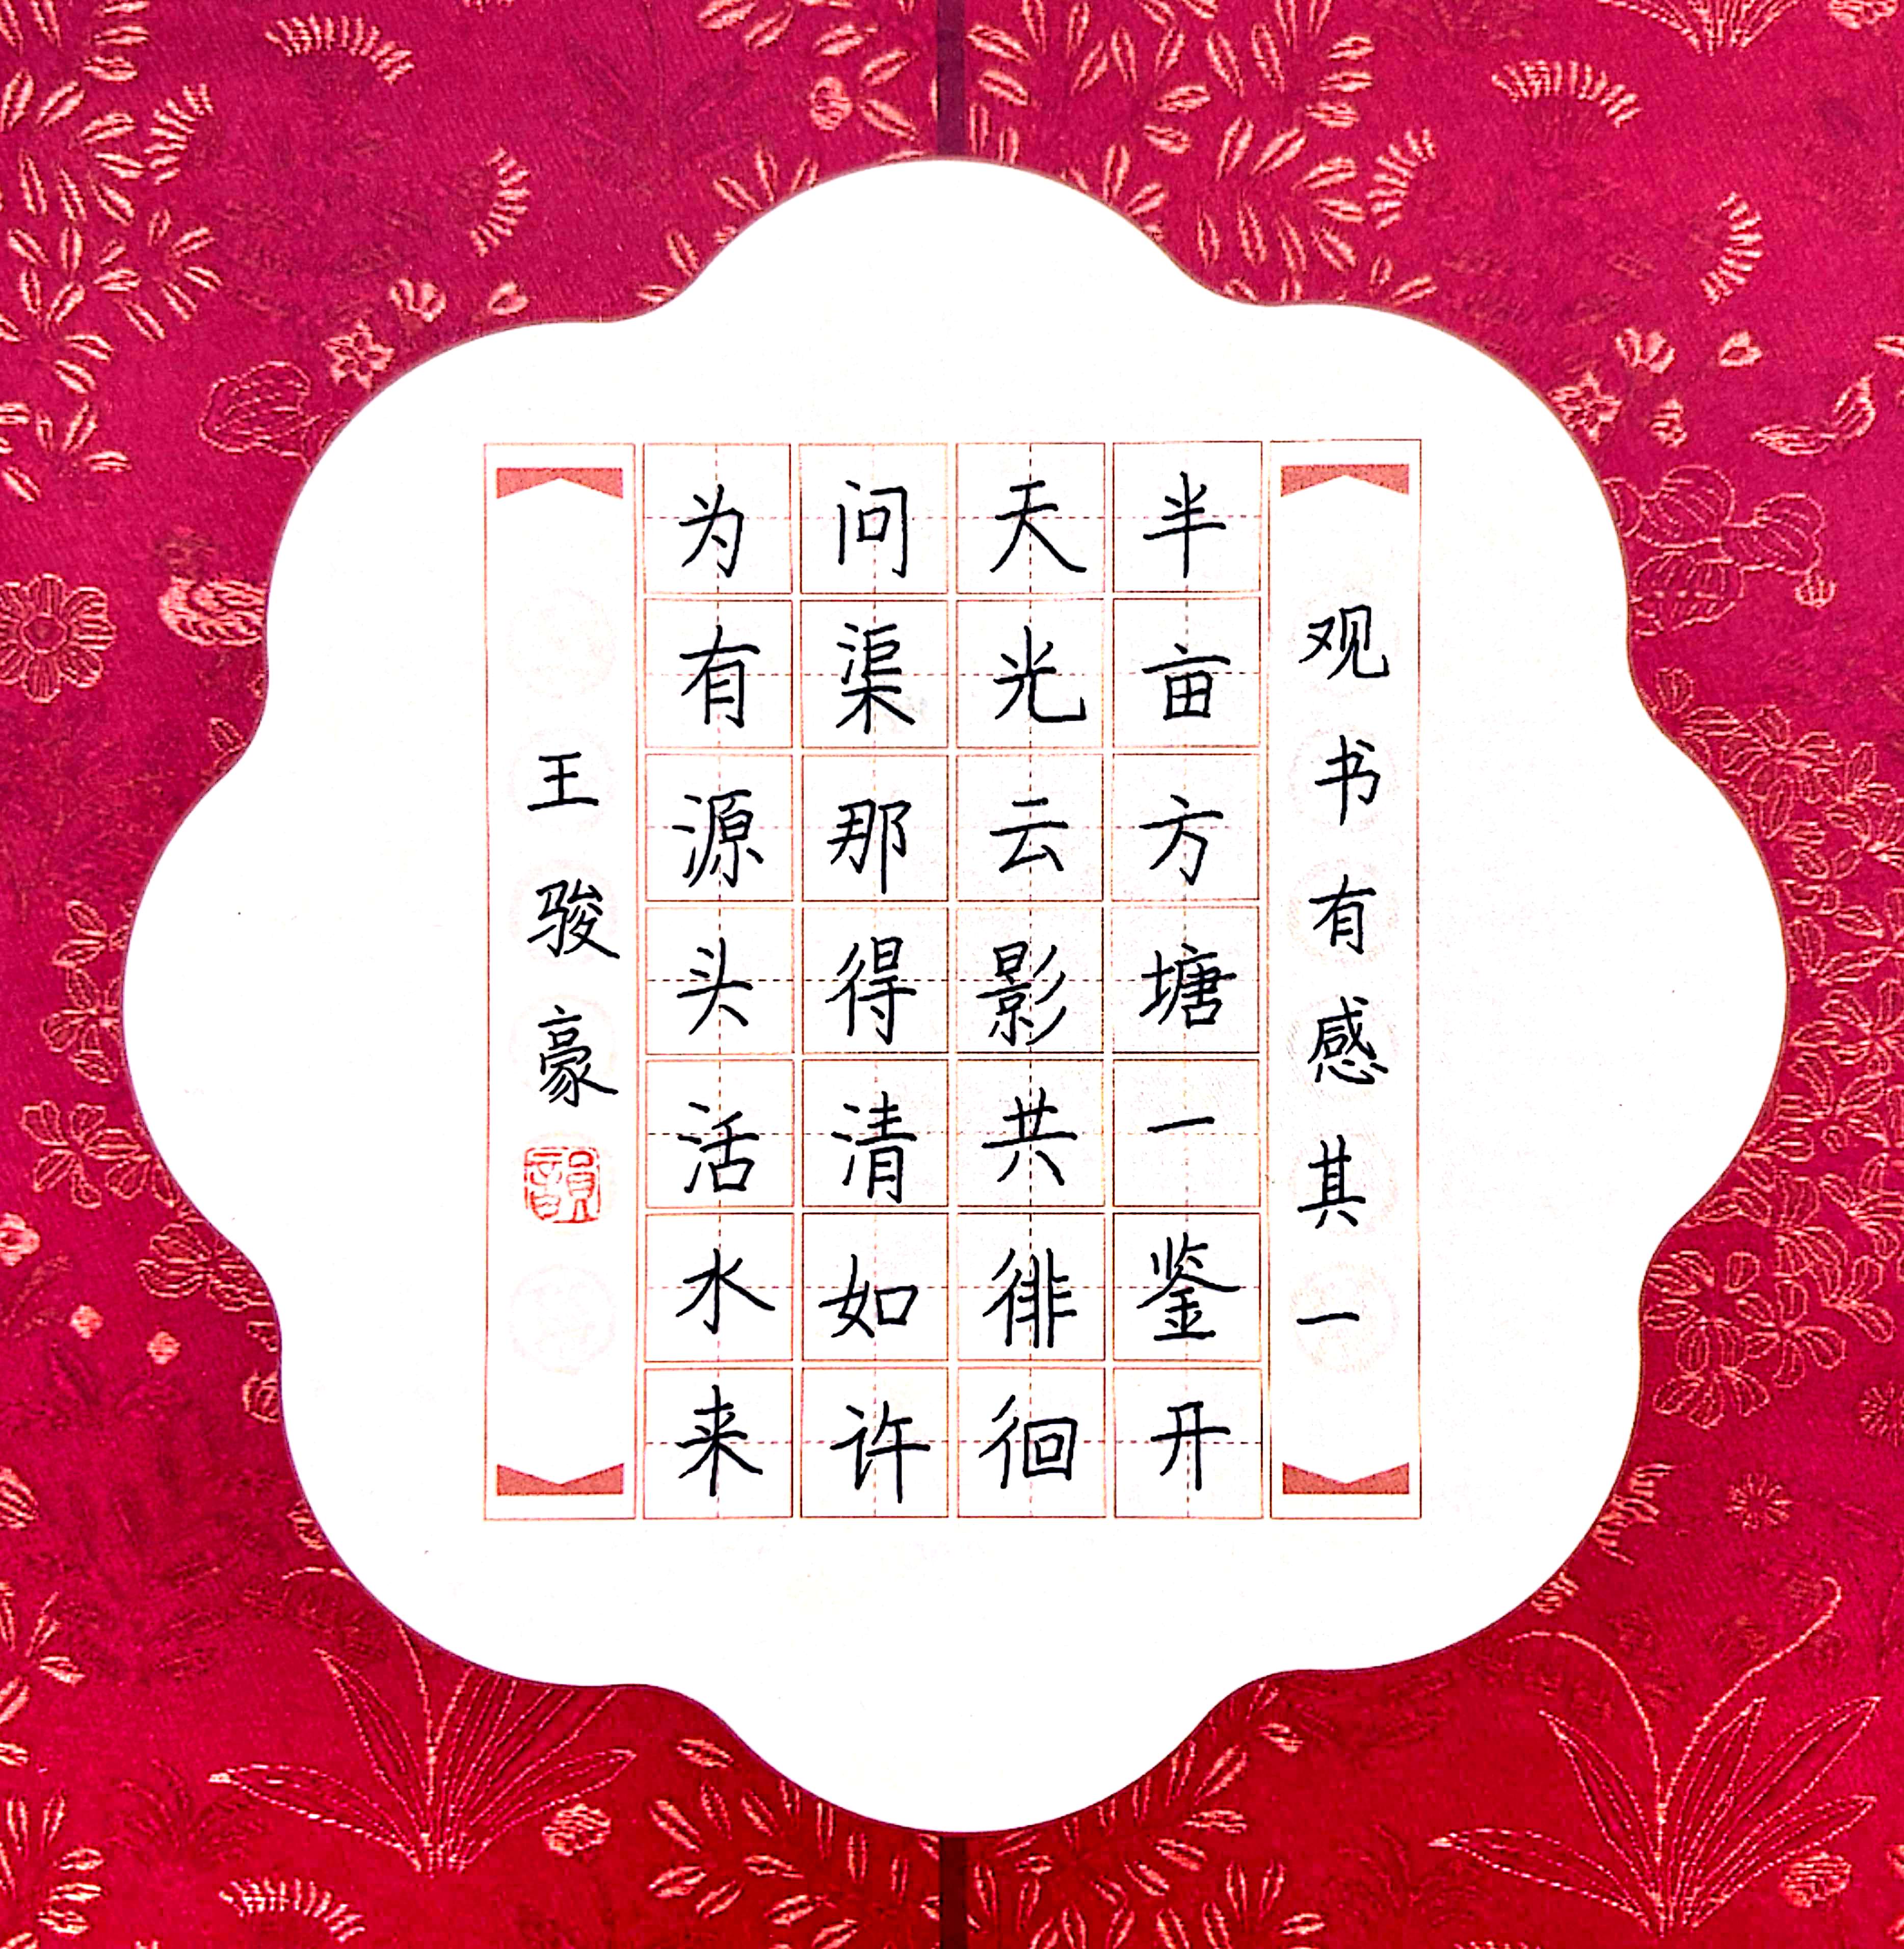 观书有感其一
半亩方塘一鉴开
天光云影共徘徊
问渠那得清如许
为有源头活水来
王骏豪
韻